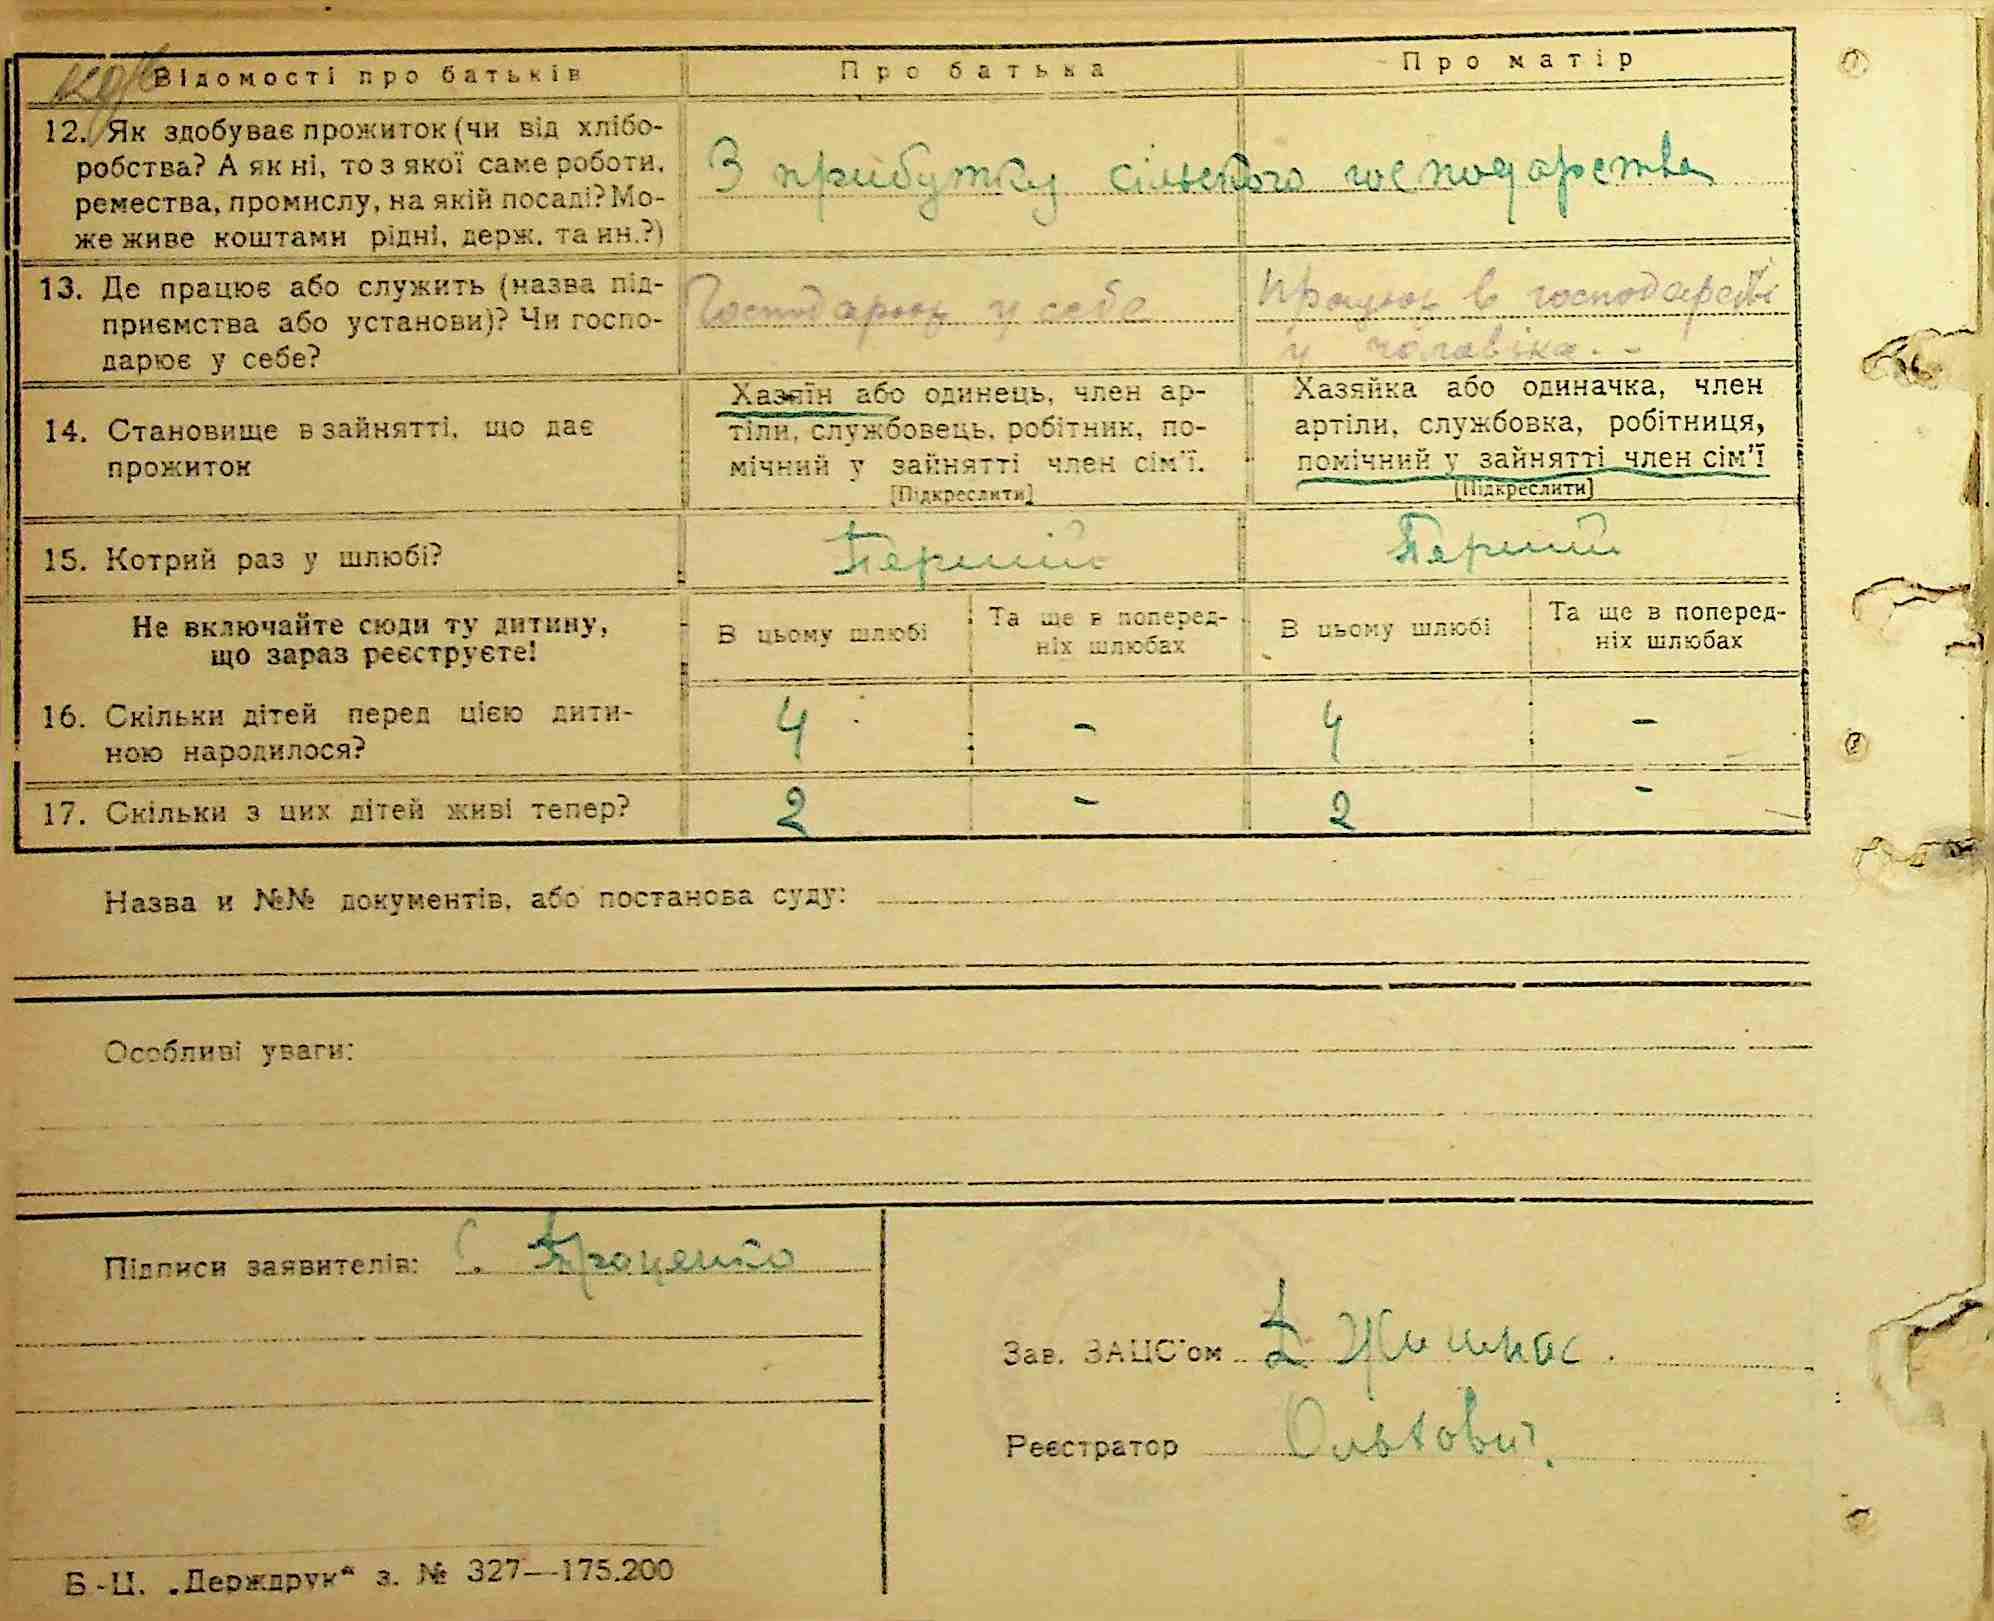 Відомості про батьків Про батька Про матір
12. Як здобуває прожиток (чи від хлібо-
робства? А як ні, то з якої саме роботи,
ремества, промислу, на якій посаді? Мо-
же живе коштами рідні, держ. та ин.?)
З прибутку сільського господарства
13. Де працює або служить (назва під-
приємства або установи)? Чи госпо-
дарює у себе?
Господарює у себе
Працює в господарстві
у чоловіка. -
14. Становище в зайнятті, що дає
прожиток
Хазяїн або одинець, член ар-
тіли, службовець, робітник, по-
мічний у зайнятті член сім'ї.
[Підкреслити]
Хазяйка або одиначка, член
артіли, службовка, робітниця,
помічний у зайнятті член сім'ї
[Підкреслити]
15. Котрий раз у шлюбі? Перший Перший
Не включайте сюди ту дитину,
що зараз реєструєте!
В цьому шлюбі
Та ще в поперед-
ніх шлюбах
В цьому шлюбі
Та ще в поперед-
ніх шлюбах
16. Скільки дітей перед цією дити-
ною народилося?
4 - 4 -
17. Скільки з цих дітей живі тепер? 2 - 2 -
Назва и №№ документів, або постанова суду:
Особливі уваги:
Підписи заявителів: Проценко
Зав. ЗАЦС'ом
Реєстратор
Б-Ц. „Держдрук“ з. № 327—175.200